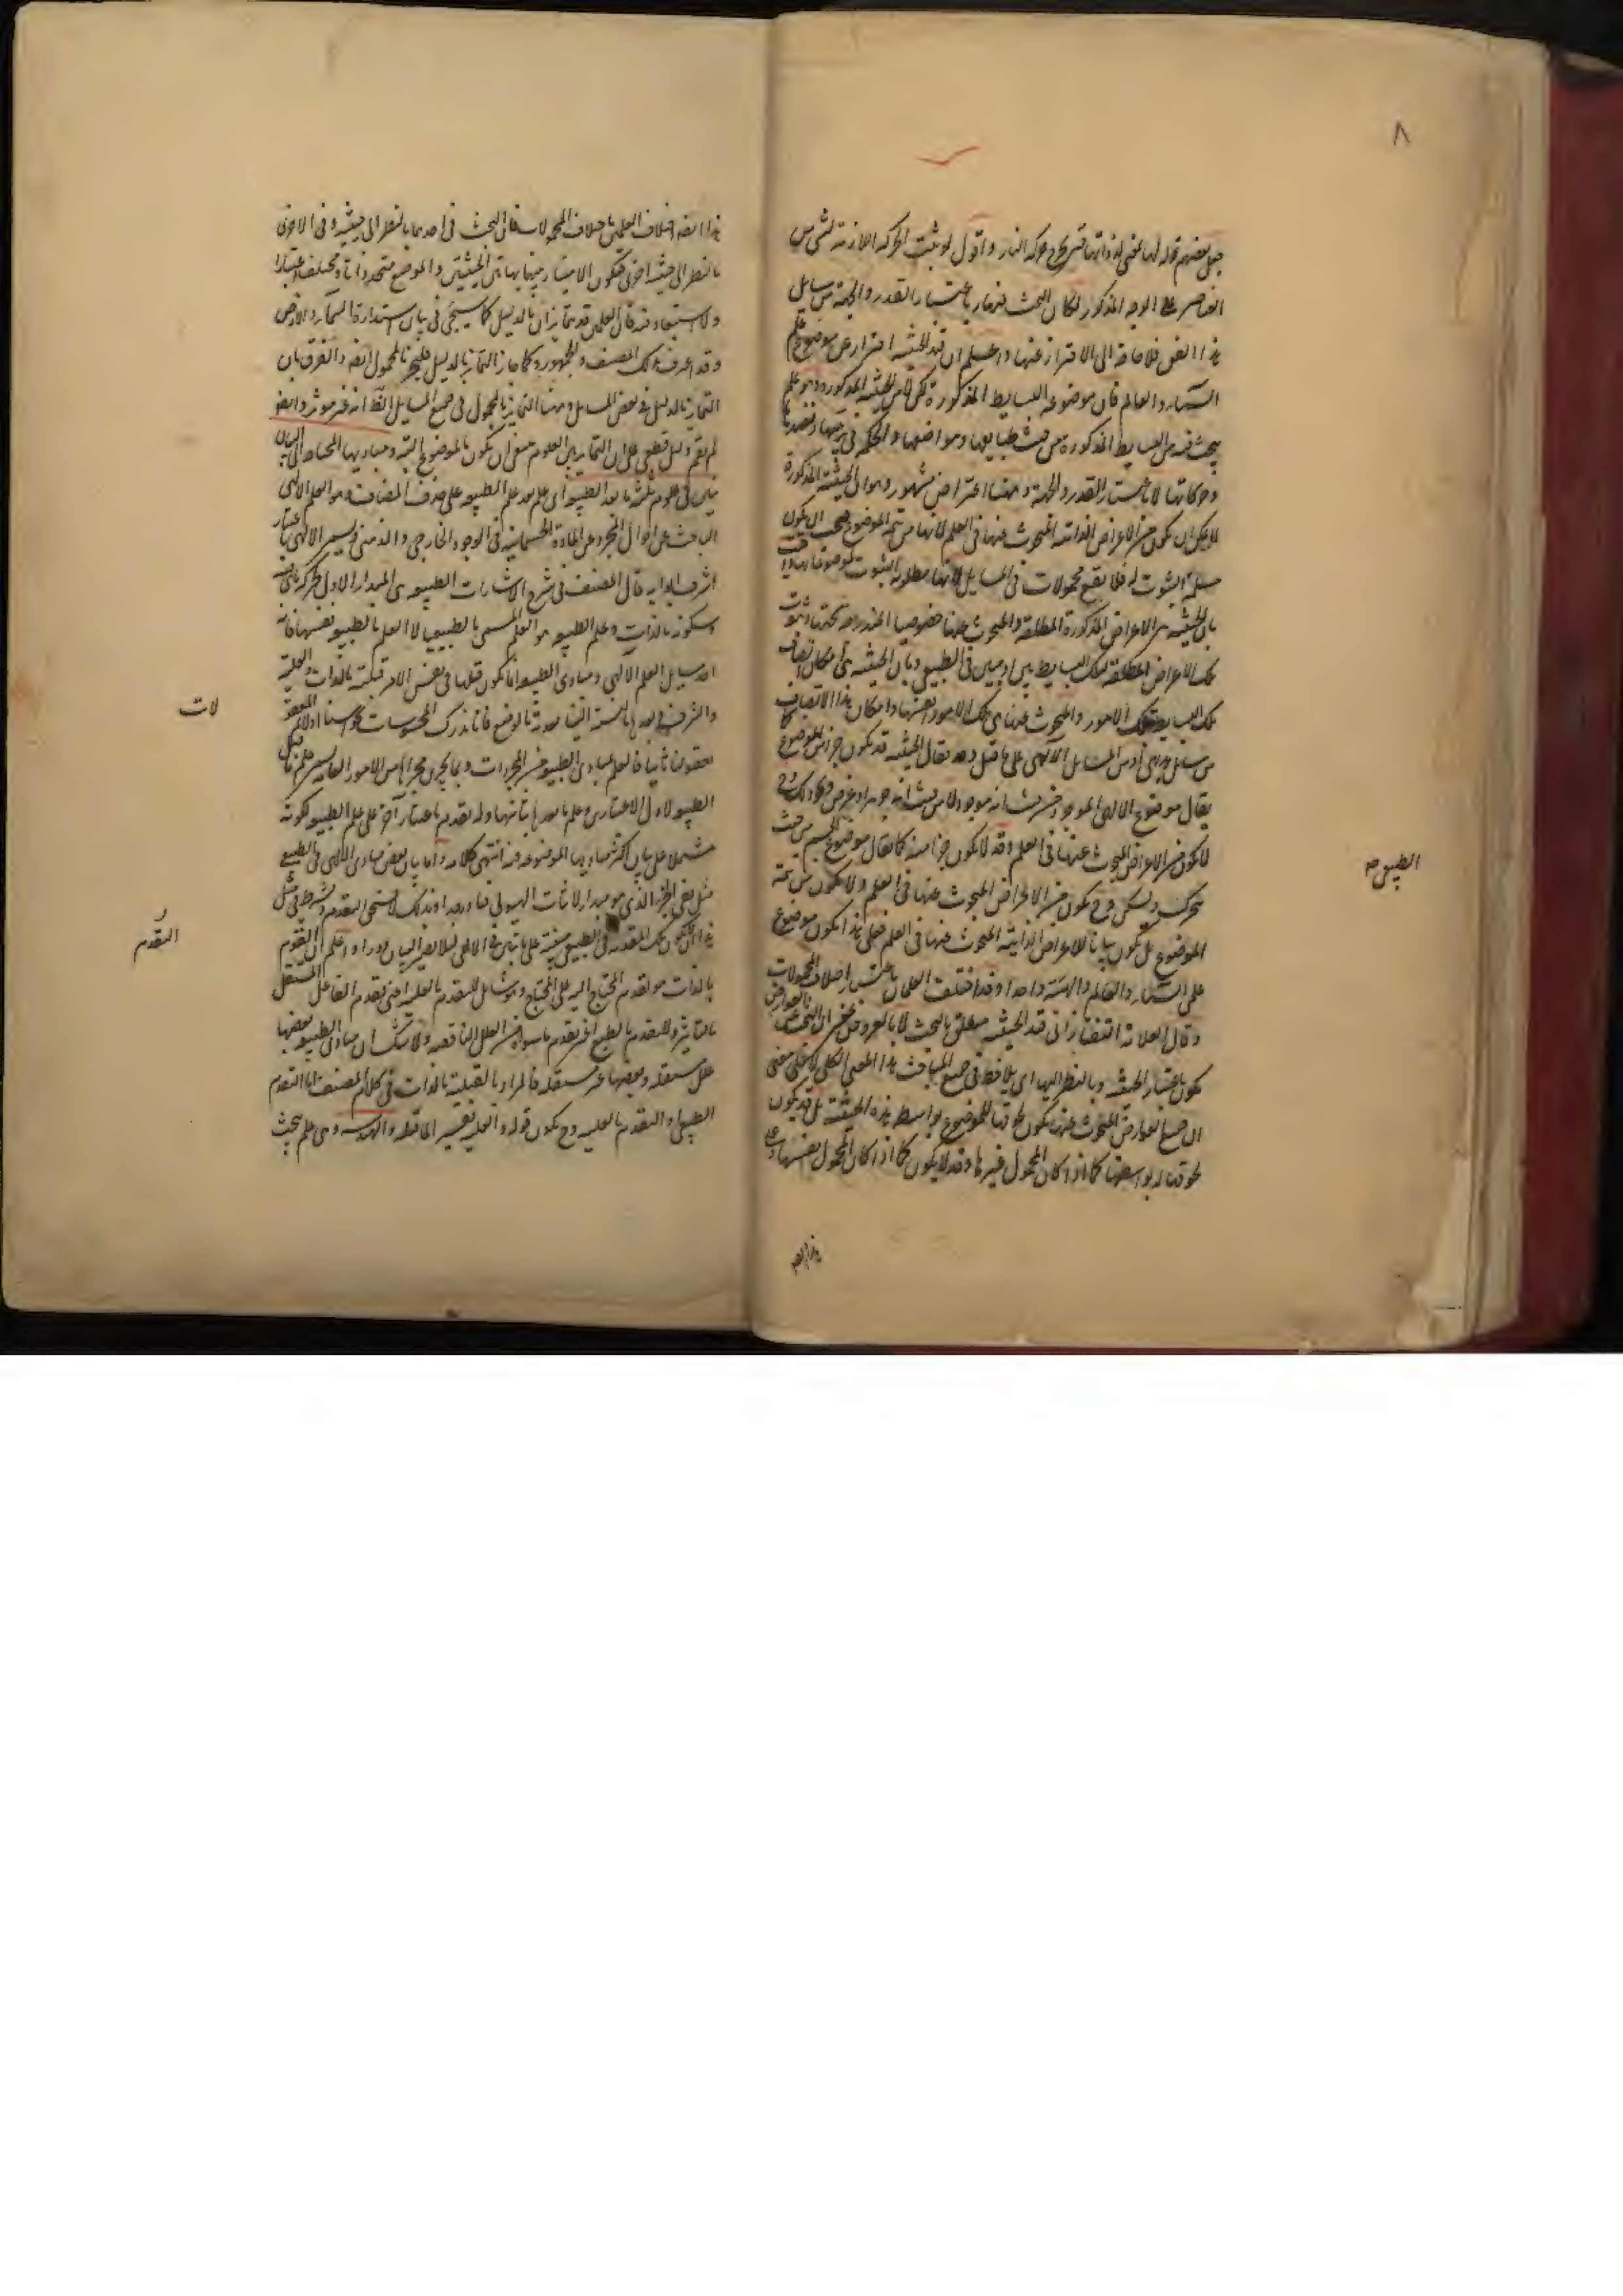 ٨
جعل بعضهم قوله لها لمعنى لذواتها فتخرج حركة النار واقول لو ثبت الحركة اللازمة لشئ من
العناصر على الوجه المذكور لكان البحث عنها باعتبار القدر والجهة من مسايل
هذا الفن فلا حاجة الى الاحتراز عنها واعلم ان قيد الحيثية احتراز عن موضوع علم
السماء والعالم فان موضوعه البسايط المذكورة لكن لا من الحيثية المذكورة وهو علم
يبحث فيه عن البسايط المذكورة من حيث طبايعها ومواضعها والحكمة في ترتيبها ونضدها
وحركاتها لا باعتبار القدر والجهة وههنا اعتراض مشهور وهو ان الحيثية المذكورة
لا يمكن ان تكون من الاعراض الذاتية المبحوث عنها في العلم لانها من تتمة الموضوع فيجب ان يكون
مسلمة الثبوت له فلا يقع محمولات في المسايل لانها مطلوبة الثبوت لموضوعاتها
بان الحيثية هي الاعراض المذكورة المطلقة والمبحوث عنها خصوصياتها المندرجة تحتها وثبوت
تلك الاعراض المطلقة لتلك البسايط بين او مبين في الطبيعي وبان الحيثية هي امكان اتصاف
تلك البسايط بتلك الامور والمبحوث عنها هي تلك الامور بعينها وامكان هذا الاتصاف
من مسايل الالهي على ما قيل وقد يقال الحيثية قد تكون جزءا من الموضوع كما
يقال موضوع الالهي الموجود من حيث انه موجود لا من حيث انه جوهر او عرض
لا تكون من الاعراض المبحوث عنها في العلم وقد لا يكون جزءا منه كما يقال موضوع الجسم من حيث
يتحرك ويسكن وح يكون من الاعراض المبحوث عنها في العلم ولا يكون من تتمة
الموضوع بل تكون بيانا للاعراض الذاتية المبحوث عنها في العلم فعلى هذا يكون موضوع
علمي السماء والعالم والهيئة واحدا وقد اختلف العلمان باعتبار اختلاف المحمولات
وقال العلامة التفتازاني قيد الحيثية متعلق بالبحث لا بالعروض بمعنى ان البحث عن العوارض
يكون باعتبار الحيثية وبالنظر اليها اي يلاحظ في جميع المباحث هذا المعنى الكلي لا على معنى
ان جميع العوارض المبحوث عنها يكون لحوقها للموضوع بواسطة هذه الحيثية بل قد يكون
لحوقها له بواسطتها كما اذا كان المحمول غيرها وقد لا يكون كما اذا كان المحمول نفسها وعلى
الطبيعي صح
هذا ايضا
هذا ايضا اختلاف العلمين باختلاف المحمولات فان البحث في احدهما بالنظر الى حيثية وفي الاخرى
بالنظر الى حيثية اخرى فيكون الامتياز بينهما بهاتين الحيثيتين والموضوع متحد ذاتا ومختلف اعتبارا
ولا استبعاد فيه فان العلمين قد يتمايزان بالدليل كما سيجئ في بيان استدارة السماء والارض
وقد اعترف بذلك المصنف والجمهور وكما جاز التمايز بالدليل فليجز بالمحمول ايضا والفرق بان
التمايز بالدليل في بعض المسايل وههنا التمايز بالمحمول في جميع المسايل الظاهر انه غير موثر وايضا
لم يقم دليل قطعي على ان التمايز بين العلوم ينبغي ان يكون بالموضوع البتة ومباديها المحتاجة الى البيان
تبين في علوم ثلثة ما بعد الطبيعة اي علم بعد علم الطبيعة على حذف المضاف وهو العلم الالهي
الباحث عن احوال المجرد عن المادة الجسمانية في الوجود الخارجي والذهني وتسميته الالهي باعتبار
اشرف ابوابه قال المصنف في شرح الاشارات الطبيعة هي المبدأ الاول لحركة ما هي فيه
وسكونه بالذات وعلم الطبيعة هو العلم المسمى بالطبيعي لا العلم بالطبيعة نفسها فانه
احد مسايل العلم الالهي ومبادي الطبيعة انما تكون قبلها في نفس الامر قبلية بالذات والعلية
والشرف وبعدها بالنسبة الينا بعدية بالوضع فانا ندرك المحسوسات بحواسنا اولا ثم المعقولات
بعقولنا ثانيا فالعلم بمبادي الطبيعة من المجردات وما يجري مجراها من الامور العامة يسمى علم ما قبل
الطبيعة لاول الاعتبارين وعلم ما بعدها لثانيهما وله تقديم باعتبار آخر على علم الطبيعة لكونه
مشتملا على بيان اكثر مباديها الموضوعة فيه انتهى كلامه واما بيان بعض مبادي الالهي في الطبيعي
مثل نفي الجزء الذي هو مبدأ لاثبات الهيولى فنادر جدا وبذلك لا يستحق التقدم وشرط في مثل
هذا ان لا تكون تلك المقدمة في الطبيعي مبنية على ما تبين في الالهي لئلا يصير البيان دورا واعلم ان التقدم
بالذات هو تقدم المحتاج اليه على المحتاج وهو شامل للتقدم بالعلية اعني تقدم الفاعل المستقل
بالتأثير وللتقدم بالطبع اعني تقدم ما سواه من العلل الناقصة ولا شك ان مبادي الطبيعة بعضها
علل مستقلة وبعضها غير مستقلة فالمراد بالقبلية بالذات في كلام المصنف اما التقدم
الطبيعي او التقدم بالعلية وح يكون قوله والعلية تفسيرا لما قبله والهندسة وهي علم يبحث
لات
التقدم